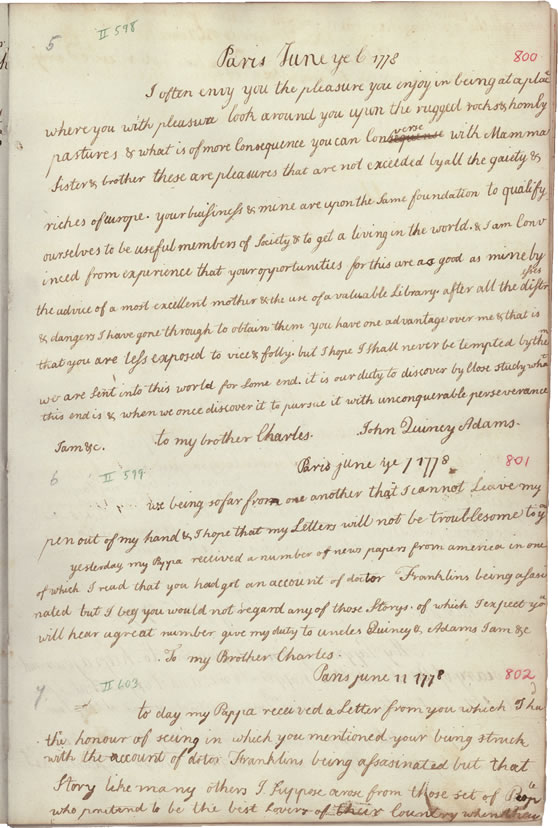 5 II 598
Paris June ye 6 1778 800
I often envy you the pleasure you enjoy in being at a place
where you with pleasure look around you upon the rugged rocks & homly
pastures & what is of more Consequence you can Converse with Mamma
Sister & brother these are pleasures that are not exceeded by all the gaiety &
riches of europe. your buisiness & mine are upon the Same foundation to qualify
ourselves to be useful members of Society & to get a living in the world. & I am Conv
inced from experience that your opportunities for this are as good as mine by
the advice of a most excellent mother & the use of a valuable Library. after all the distresses
& dangers I have gone through to obtain them you have one advantage over me & that is
that you are less exposed to vice & folly. but I hope I shall never be tempted by them
we are Sent into this world for Some end. it is our duty to discover by Close study what
this end is & when we once discover it to pursue it with unconquerable perseverance
I am &c. to my brother Charles. John Quincy Adams.
6 II 599 Paris june ye 7 1778 801
we being so far from one another that I cannot Leave my
pen out of my hand & I hope that my Letters will not be troublesome to you
yesterday my Pappa recieved a number of news papers from america in one
of which I read that you had got an account of doctor Franklins being assasi
nated but I beg you would not regard any of those Storys. of which I expect you
will hear a great number give my duty to uncles Quincy &, Adams I am &c
To my Brother Charles.
7 II 603 Paris june 11 1778 802
to day my Pappa received a Letter from you which I had
the honour of seeing in which you mentioned your being struck
with the account of doctor Franklins being assasinated but that
Story like many others I Suppose arose from those set of People
who pretend to be the best Lovers of their Country when they